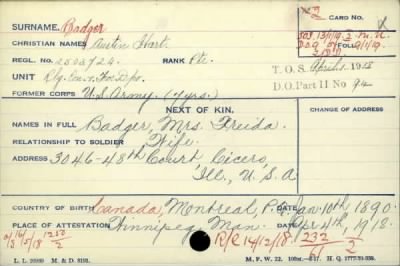 SURNAME. Badger
CARD NO.
CHRISTIAN NAMES Austin Hart.
FOLL.
REGL. NO. 2503724. RANK Pte.
UNIT
T.O.S. April. 1. 1918
D.O. Part II No 94
FORMER CORPS U.S. Army. (4 yrs.)
NEXT OF KIN.
CHANGE OF ADDRESS
NAMES IN FULL Badger, Mrs. Freida.
RELATIONSHIP TO SOLDIER Wife.
ADDRESS 3046-48th Court, Cicero,
Ill., U.S.A
COUNTRY OF BIRTH Canada, Montreal, P.Q. DATE Jan. 10th, 1890.
PLACE OF ATTESTATION Winnipeg, Man. DATE Apr 4th, 1918.
R/C 14/12/18. 232
M. F. W. 22.